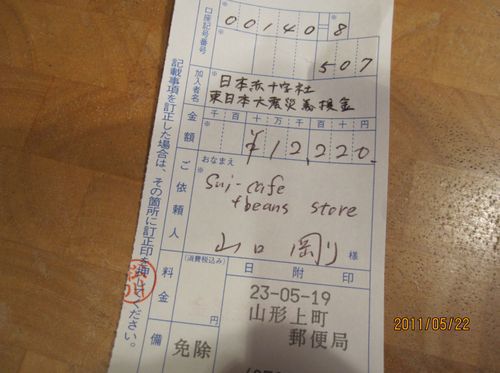 口座記号番号
00140=8
507
加入者名
日本赤十字社
東日本大震災義援金
金額
千百十万千百十円
¥12,220
ご依頼人
おなまえ
Sui-cafe
+beans store
山口 剛 様
料金
(消費税込み)
円
日附印
23-05-19
山形上町
郵便局
備
免除
記載事項を訂正した場合は、その箇所に訂正印を押してください。
2011/05/22